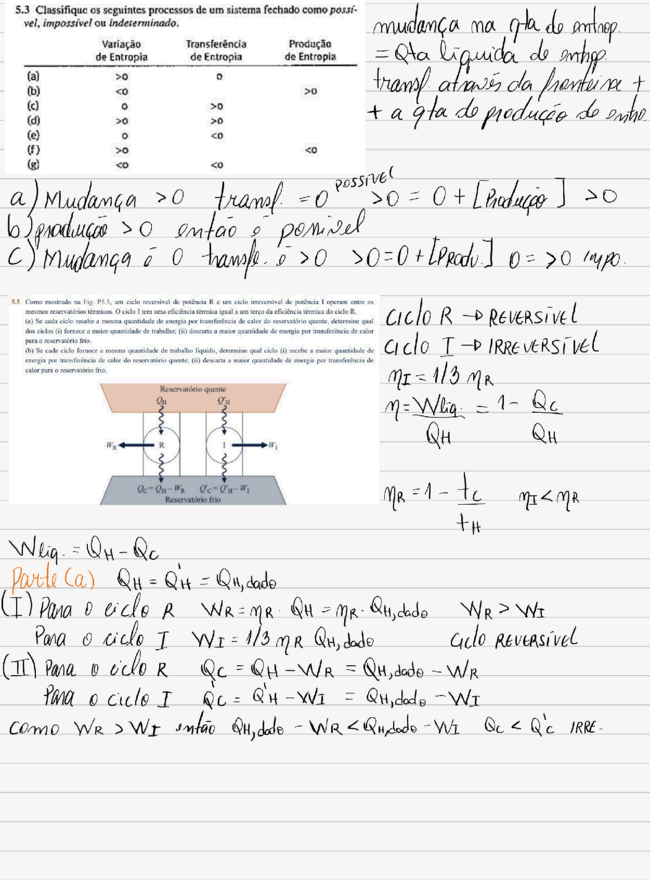 5.3 Classifique os seguintes processos de um sistema fechado como possí-
vel, impossível ou indeterminado.
Variação de Entropia Transferência de Entropia Produção de Entropia
(a) >0 0
(b) <0 >0
(c) 0 >0
(d) >0 >0
(e) 0 <0
(f) >0 <0
(g) <0 <0
mudança na qta de entrop.
= Qta líquida de entrop.
transf. através da fronteira +
+ a qta de produção de entro.
a) Mudança >0 transf. = 0 POSSÍVEL >0 = 0 + [Produção] >0
b) produção >0 então é possível
c) Mudança é 0 transfe. é >0 >0=0+[Produ.] 0=>0 impo.
5.5 Como mostrado na Fig. P5.5, um ciclo reversível de potência R e um ciclo irreversível de potência I operam entre os
mesmos reservatórios térmicos. O ciclo I tem uma eficiência térmica igual a um terço da eficiência térmica do ciclo R.
(a) Se cada ciclo recebe a mesma quantidade de energia por transferência de calor do reservatório quente, determine qual
dos ciclos (i) fornece a maior quantidade de trabalho; (ii) descarta a maior quantidade de energia por transferência de calor
para o reservatório frio.
(b) Se cada ciclo fornece a mesma quantidade de trabalho líquido, determine qual ciclo (i) recebe a maior quantidade de
energia por transferência de calor do reservatório quente; (ii) descarta a maior quantidade de energia por transferência de
calor para o reservatório frio.
Reservatório quente
QH Q'H
WR R I WI
QC = QH – WR Q'C = Q'H – WI
Reservatório frio
Ciclo R → REVERSÍVEL
Ciclo I → IRREVERSÍVEL
ηI = 1/3 ηR
η = Wliq. / QH = 1 - QC / QH
ηR = 1 - tC / tH ηI < ηR
Wliq. = QH - QC
Parte (a) QH = Q'H = QH,dado
(I) Para o ciclo R WR = ηR · QH = ηR · QH,dado WR > WI
Para o ciclo I WI = 1/3 ηR QH,dado Ciclo REVERSÍVEL
(II) Para o ciclo R QC = QH - WR = QH,dado - WR
Para o ciclo I Q'C = Q'H - WI = QH,dado - WI
como WR > WI então QH,dado - WR < QH,dado - WI QC < Q'C IRRE.